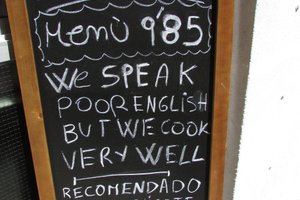 Menù 9'85
We SPEAK
POOR ENGLISH
BUT WE COOK
VERY WELL
RECOMENDADO